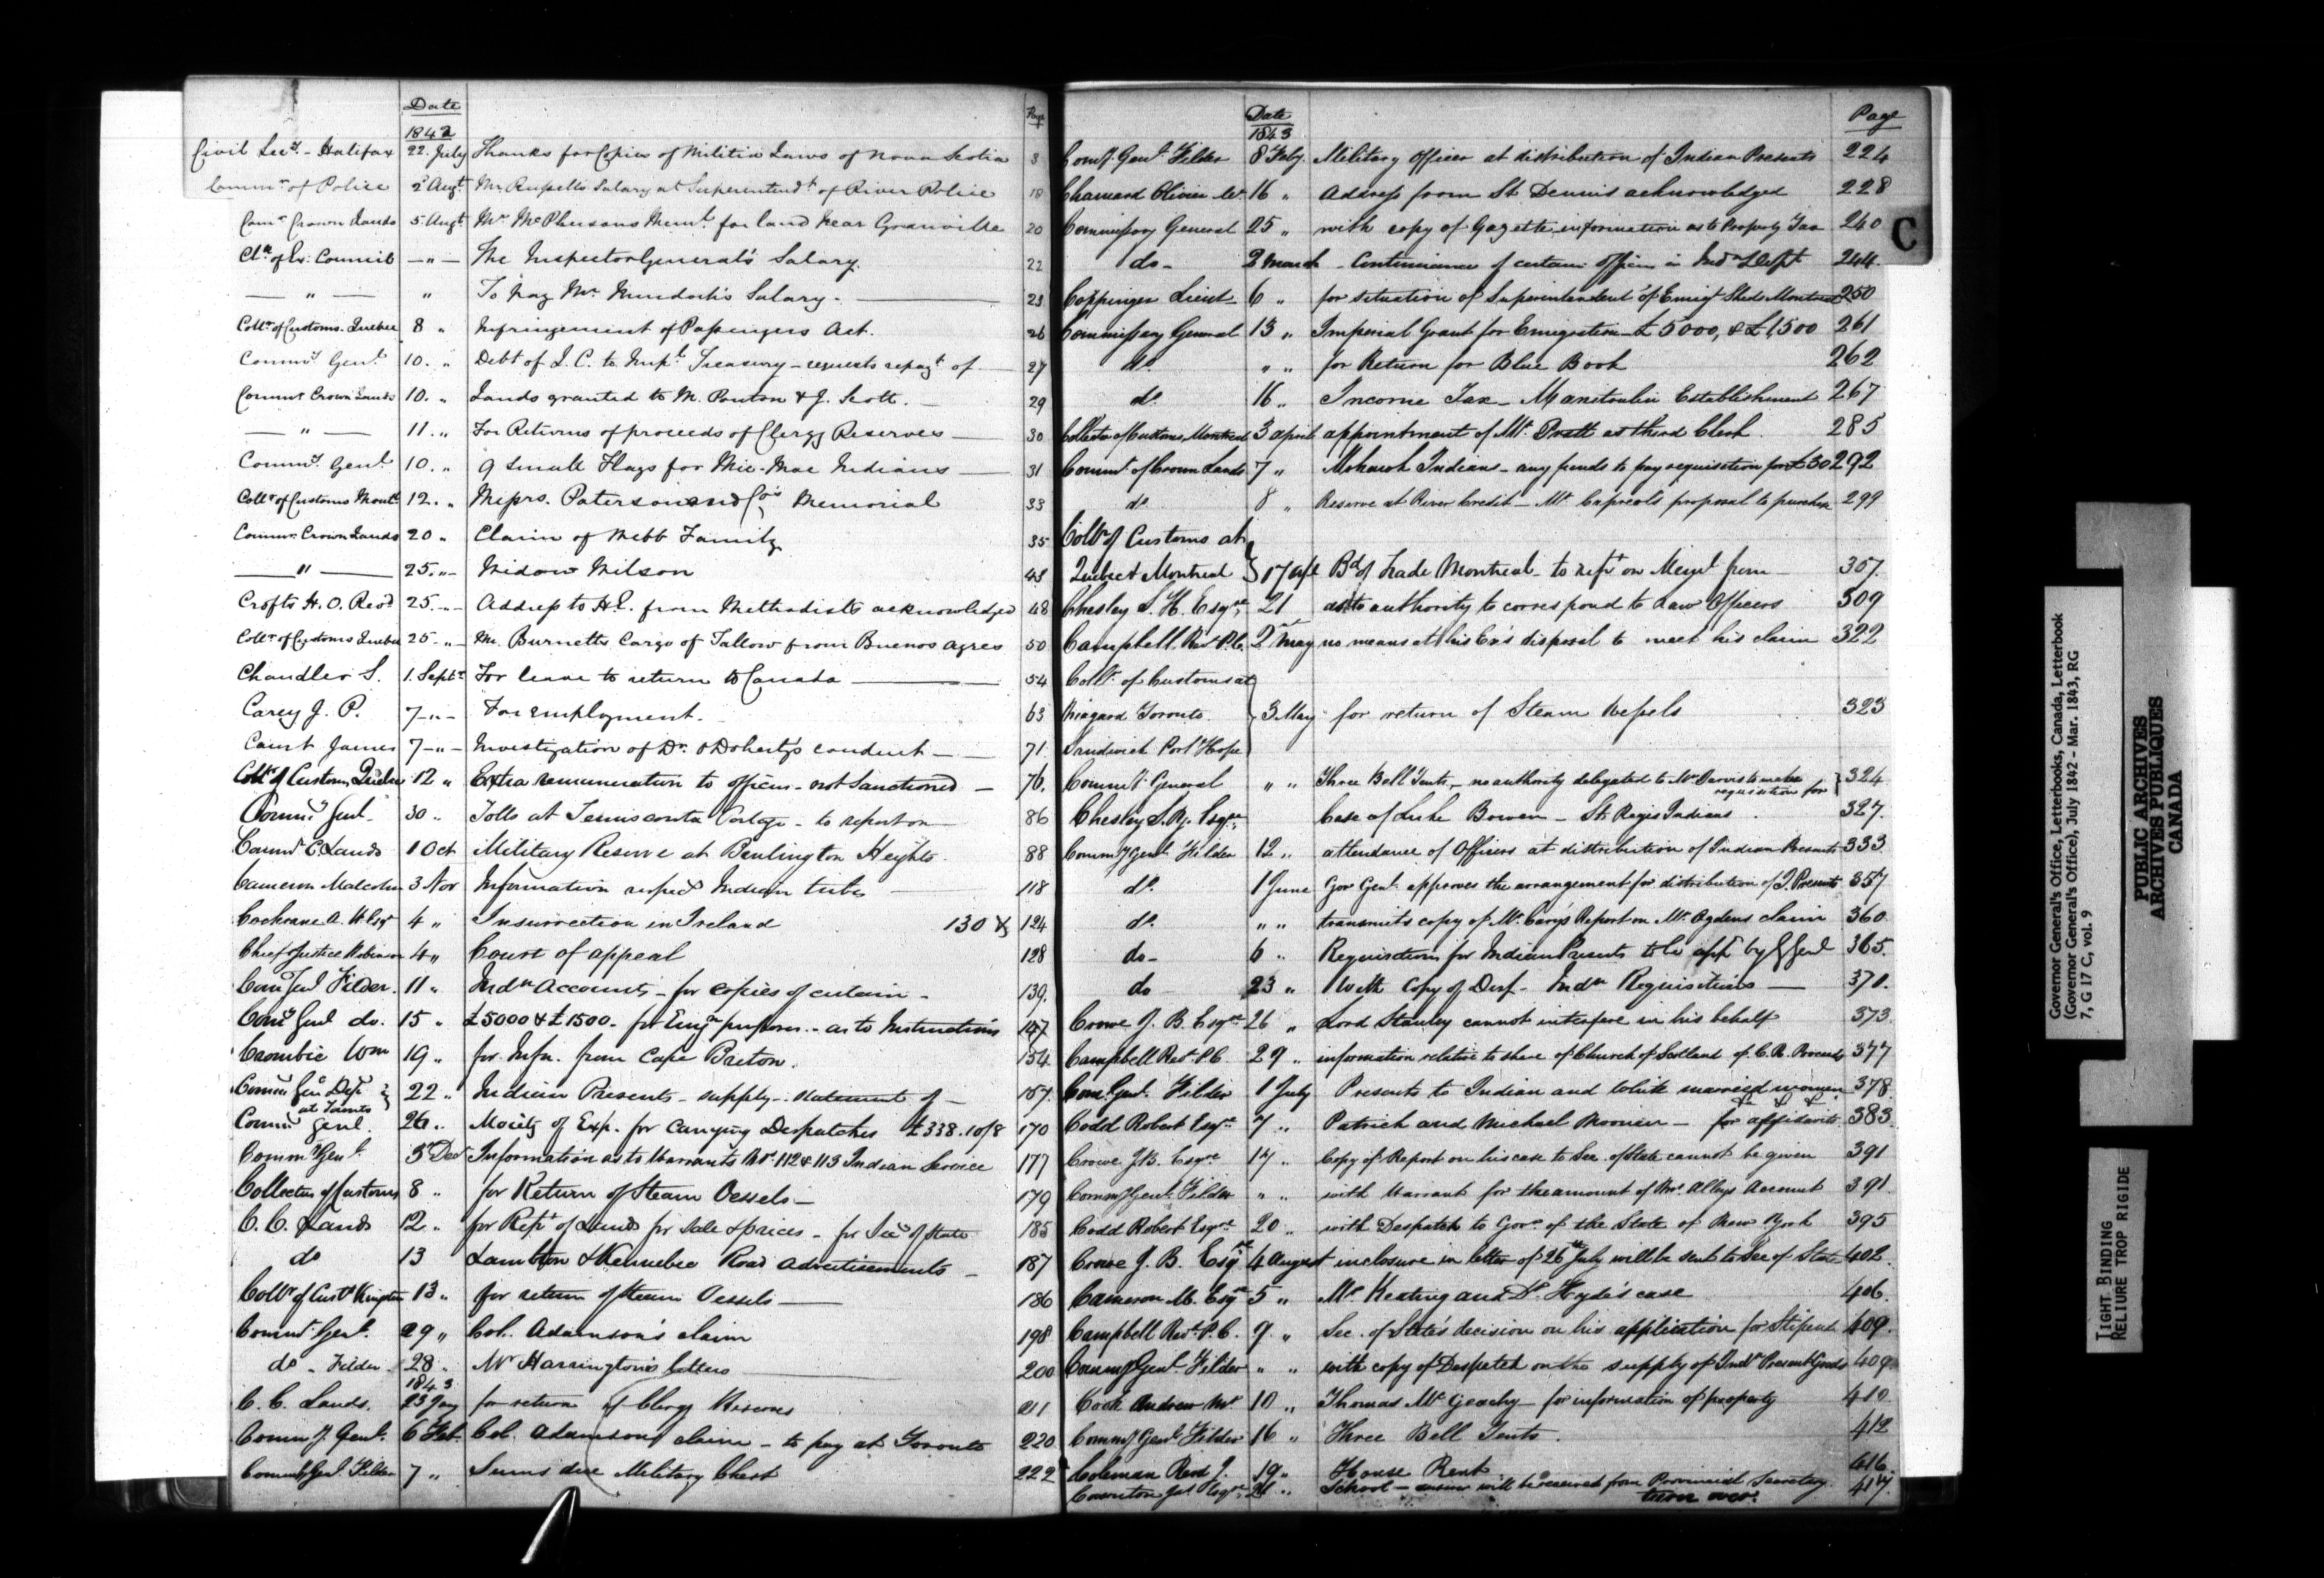 Date Page
1842
Civil Secy. - Halifax 22. July Thanks for Copies of Militia Laws of Nova Scotia 8
Commr. of Police 2 Augt. Mr. Russell's Salary as Superintendt. of River Police 18
Comr. Crown Lands 5. Augt. Mr. McPhersons Meml. for land near Granville 20
Clk. of Ex: Council — " — The Inspector General's Salary. 22
— " — " To pay Mr. Murdoch's Salary - 23
Collr. of Customs. Quebec 8 " Infringement of Passengers Act. 26
Commy. Genl. 10. " Debt of L. C. to Impl. Treasury - requests repayt. of 27
Commr. Crown Lands 10. " Lands granted to M. Ponton & J. Scott. 29
— " — 11. " For Returns of proceeds of Clergy Reserves 30
Commy. Genl. 10. " 9 Small Flags for Mic-Mac Indians 31
Collr. of Customs Montl. 12. " Messrs. Paterson and Co's Memorial 33
Commr. Crown Lands 20 " Claim of Webb Family 35
— " — 25. " - Widow Wilson 43
Crofts H. O. Revd. 25. " - Address to H.E. from Methodists acknowledged 48
Collr. of Customs Quebec 25. " - Mr. Burnetts Cargo of Tallow from Buenos Ayres 50
Chandler S. 1. Septr. For leave to return to Canada 54
Carey J. P. 7 - " - For employment. 63
Court James 7 - " - Investigation of Dr. O'Doherty's conduct 71
Collr. of Customs Quebec 12 " Extra remuneration to officers - not Sanctioned 76.
Commy. Genl. 30 " Tolls at Temiscouata Portage - to report on 86
Commr. C. Lands 1 Oct Military Reserve at Burlington Heights. 88
Cameron Malcolm 3 Nov Information respecg. Indian tribes 118
Cochrane A. W. Esqr. 4 " Insurrection in Ireland 130 & 124
Chief Justice Robinson 4 " Court of appeal 128
Comy. Genl Filder. 11 " Indn. Accounts - for copies of certain - 139.
Comy. Genl do. 15 " £5000 & £1500 - for Emign. purposes - as to Instructions 147
Crombie Wm 19 " for Infn. from Cape Breton. 154
Commy. Genl. Dept at Toronto 22 " Indian Presents - supply - statement of - 157.
Commy. Genl. 26 " Moiety of Exp. for Carrying Despatches £338.10/8 170
Commy. Genl. 3 Decr. Information as to Warrants Nos. 112 & 113 Indian Service 177
Collector of Customs 8 " for Return of Steam Vessels - 179
C. C. Lands 12 " for Rept. of Lands for Sale & prices - for Secy. of State 185
do 13 Lambton & Kennebec Road Advertisements 187
Collr. of Custs. Kingston 13 " for return of Steam Vessels 186
Commy. Genl. 29 " Col. Adamson's claim 198
do - Filder - 28 " Mr Harrington's letters 200
1843
C. C. Lands. 23 Jany for return of Clergy Reserves 211
Commy. Genl. 6 Feb. Col. Adamsons claim - to pay at Toronto 220
Commy. Genl. Filder 7 " Sums due Military Chest 222
Date Page
1843
Comy. Genl. Filder 8 Feby. Military officer at distribution of Indian Presents 224
Chamard Olivier &c. 16 " Address from St Dennis acknowledged 228
Commissary General 25 " with copy of Gazette information as to Property Tax 240
do - 2 March - Continuance of certain Officers in Indn Dept. 244.
Coppinger Lieut 6 " for situation of Superintendent of Emigt Sheds Montreal 250
Commissary General 13 " Imperial Grant for Emigration £5000, & £1,500 261
do. " " for Return for Blue Book 262
do. 16 " Income Tax - Manitoulin Establishment 267
Collector of Customs, Montreal 3 april appointment of Mr. Pratt as third Clerk. 285
Commr. of Crown Lands 7 " Mohawk Indians - any funds to pay requisition for £30 292
do. 8 " Reserve at River Credit - Mr. Capreol's proposal to purchase 299
Collr. of Customs at
Quebec & Montreal 17 Apl Bd. of Trade Montreal - to rept. on Meml. from 307.
Chesley S. H. Esqre. 21 as to authority to correspond to Law Officers 309
Campbell Revd. P. C. 2nd May no means at his Ex's disposal to meet his claim 322
Collr. of Customs at
Niagara Toronto 3 May for return of Steam Vessels 323
Sandwich Port Hope
Commy. General " " Three Bell Tents, - no authority delegated to Mr Jarvis to make requisition for 324
Chesley S. Y. Esqre. Case of Luke Bowen - St Regis Indians. 327.
Commy Genl Filder 12 " attendance of Officers at distribution of Indian Presents 333
do. 1 June Gov Genl. approves the arrangement for distribution of I. Presents 357
do. " " transmits copy of Mr. Cary's Report on Mr. Ogdens claim 360
do - 6 " Requisitions for Indian Presents to be appd. by G Genl 365.
do 23 " With copy of Desp - Indn Requisitions 371.
Crowe J. B. Esqre. 26 " Lord Stanley cannot interfere in his behalf 373
Campbell Revd. P. C. 29 " information relative to share of Church of Scotland of C. R. Proceeds 377
Com. Genl. Filder 1 July Presents to Indian and White married women 378
Codd Robert Esqre. 7 " Patrick and Michael Moonier - for affidavits 383.
Crowe J. B. Esqre 17 " Copy of Report on his case to Sec. of State cannot be given 391
Commy Genl. Filder " " with Warrant for the amount of Mr. Alleys Account 391
Codd Robert Esqre. 20 " with Despatch to Govr. of the State of New York 395
Crowe J. B. Esqre 4 August inclosure in letter of 26th July will be sent to Sec of State 402.
Cameron M. Esqre 5 " Mr. Keating and Dr. Hyde's case 406.
Campbell Revd. P. C. 9. " Sec. of State's decision on his application for Stipend 409.
Commy Genl Filder " " with copy of Despatch on the supply of Indn. Present Goods 409
Cook Andrew Mr. 10 " Thomas Mc Geachy - for information of property 410.
Commy Genl Filder 16 " Three Bell Tents. 412
Coleman Revd J. 19 " House Rent 416
Jas Esqre. 21 " School - answer will be received from Provincial Secretary 417.
turn over.
C
Governor General's Office, Letterbooks, Canada, Letterbook
(Governor General's Office), July 1842 - Mar. 1843, RG
7, G 17 C, vol. 9
PUBLIC ARCHIVES
ARCHIVES PUBLIQUES
CANADA
TIGHT BINDING
RELIURE TROP RIGIDE